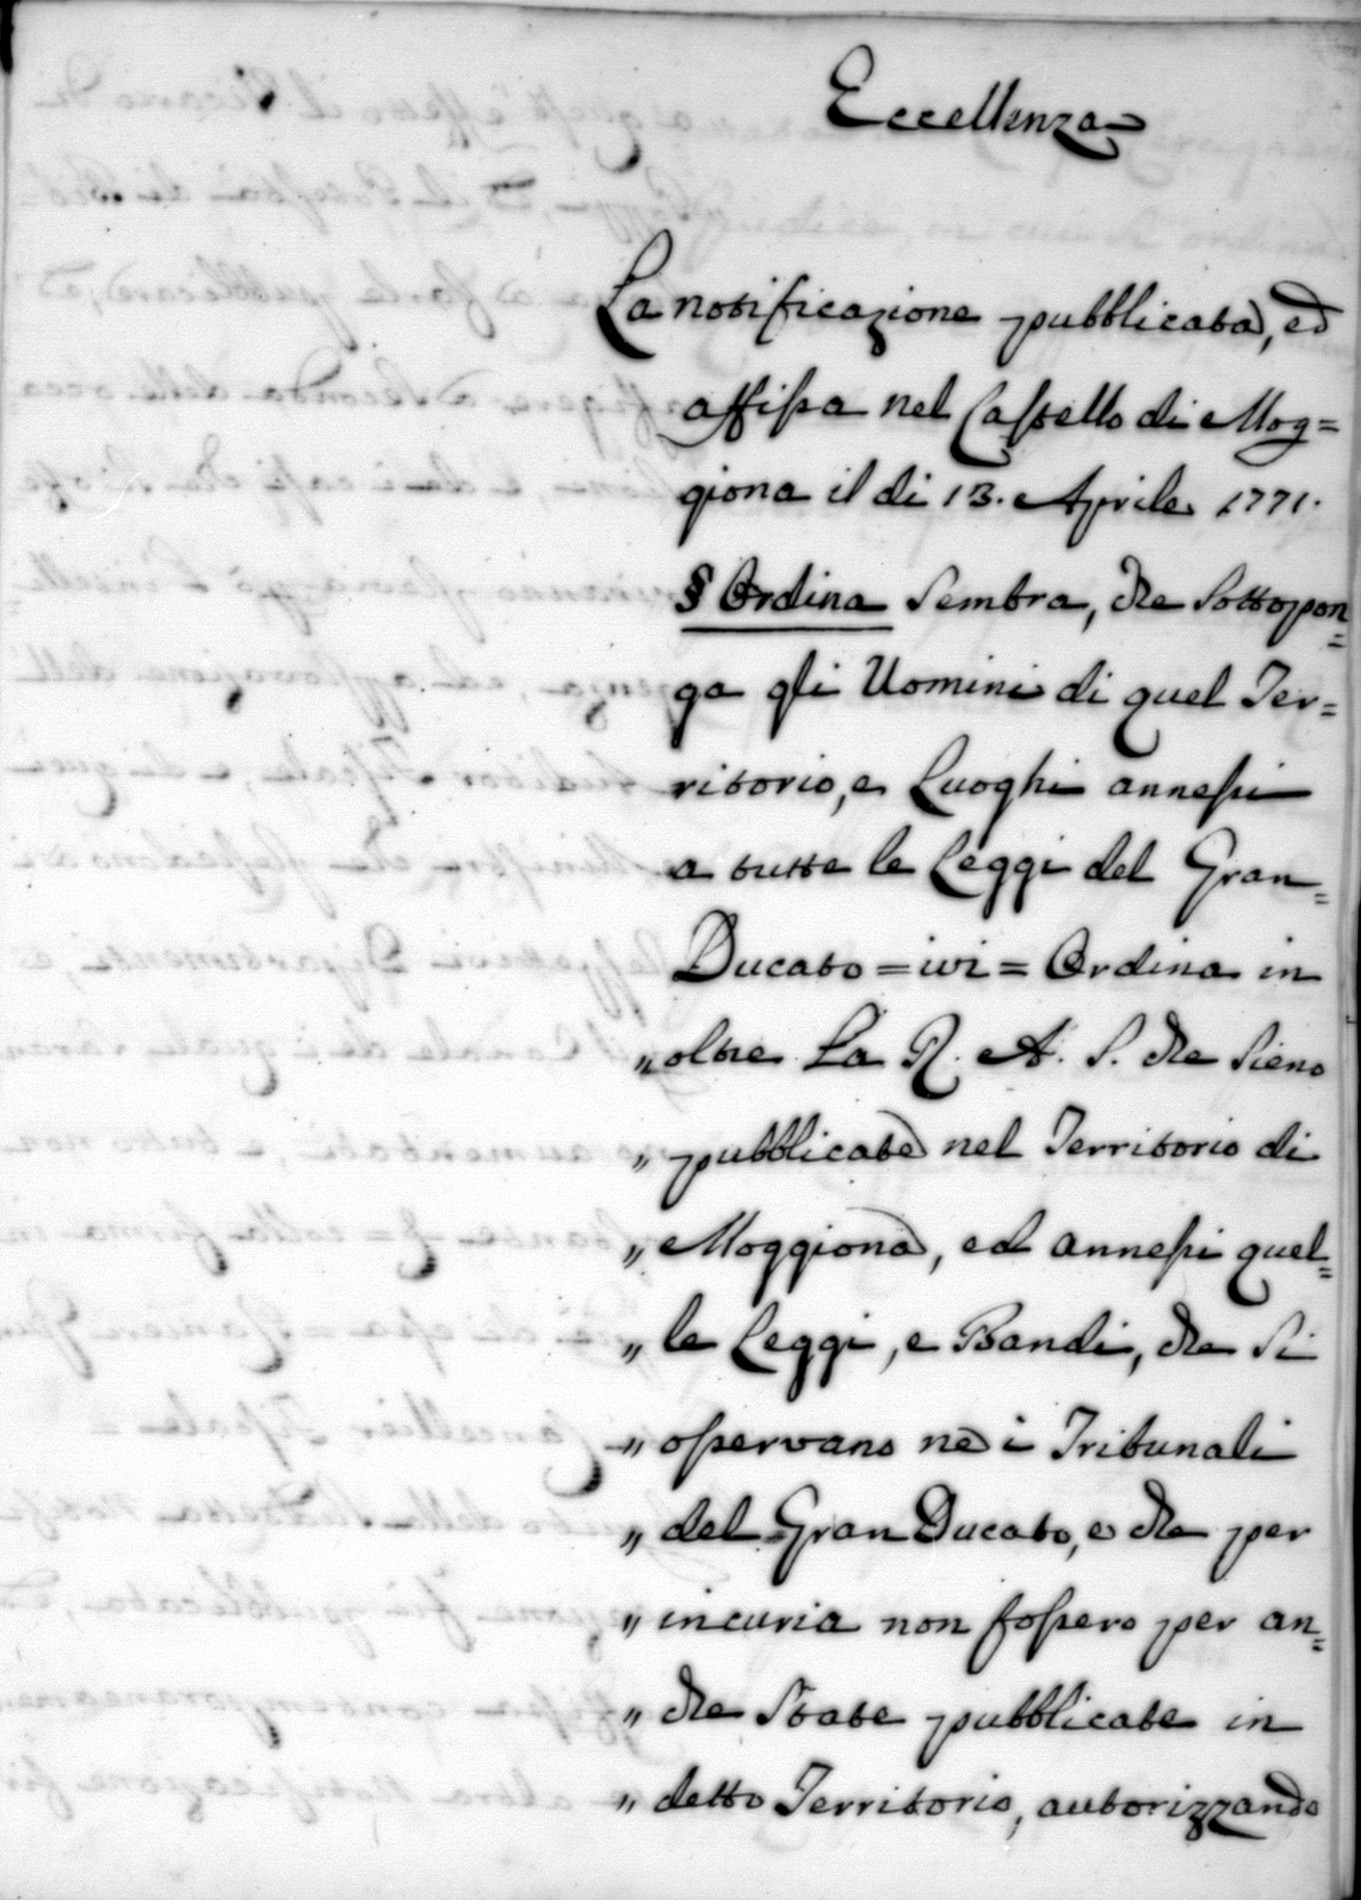 Eccellenza
La notificazione pubblicata, ed
affissa nel Castello di Mog=
giona il di 13. Aprile 1771.
§ Ordina Sembra, che Sottopon=
ga gli Uomini di quel Ter=
ritorio, e Luoghi annessi
a tutte le Leggi del Gran=
Ducato = ivi = Ordina in
„ oltre La R. A. S. che Sieno
„ pubblicate nel Territorio di
„ Moggiona, ed annessi quel=
„ le Leggi, e Bandi, che Si
„ osservano ne i Tribunali
„ del Gran Ducato, e che per
„ incuria non fossero per an=
„ che State pubblicate in
„ detto Territorio, autorizzando